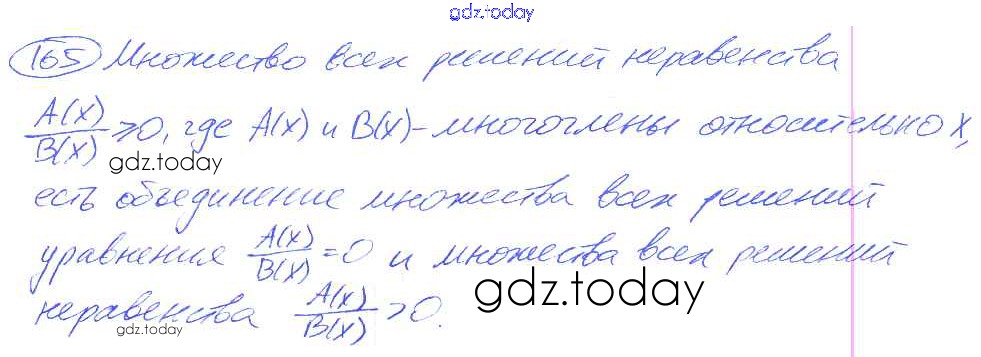 gdz.today
165 Множество всех решений неравенства
A(x)/B(x) ≥ 0, где A(x) и B(x) - многочлены относительно x,
gdz.today
есть объединение множества всех решений
уравнения A(x)/B(x) = 0 и множества всех решений
gdz.today
неравенства A(x)/B(x) > 0.
gdz.today